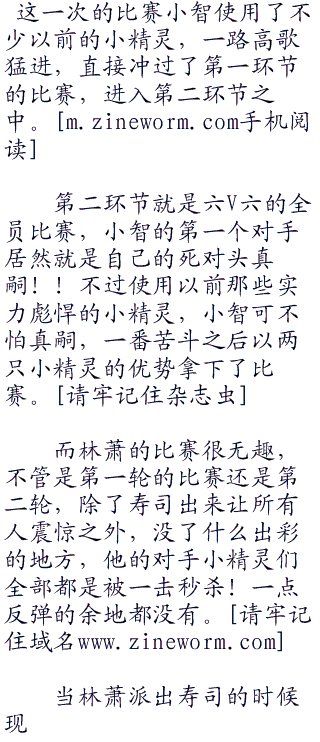 这一次的比赛小智使用了不
少以前的小精灵，一路高歌
猛进，直接冲过了第一环节
的比赛，进入第二环节之
中。[m.zineworm.com手机阅
读]
第二环节就是六V六的全
员比赛，小智的第一个对手
居然就是自己的死对头真
嗣！！不过使用以前那些实
力彪悍的小精灵，小智可不
怕真嗣，一番苦斗之后以两
只小精灵的优势拿下了比
赛。[请牢记住杂志虫]
而林萧的比赛很无趣，
不管是第一轮的比赛还是第
二轮，除了寿司出来让所有
人震惊之外，没了什么出彩
的地方，他的对手小精灵们
全部都是被一击秒杀！一点
反弹的余地都没有。[请牢记
住域名www.zineworm.com]
当林萧派出寿司的时候
现